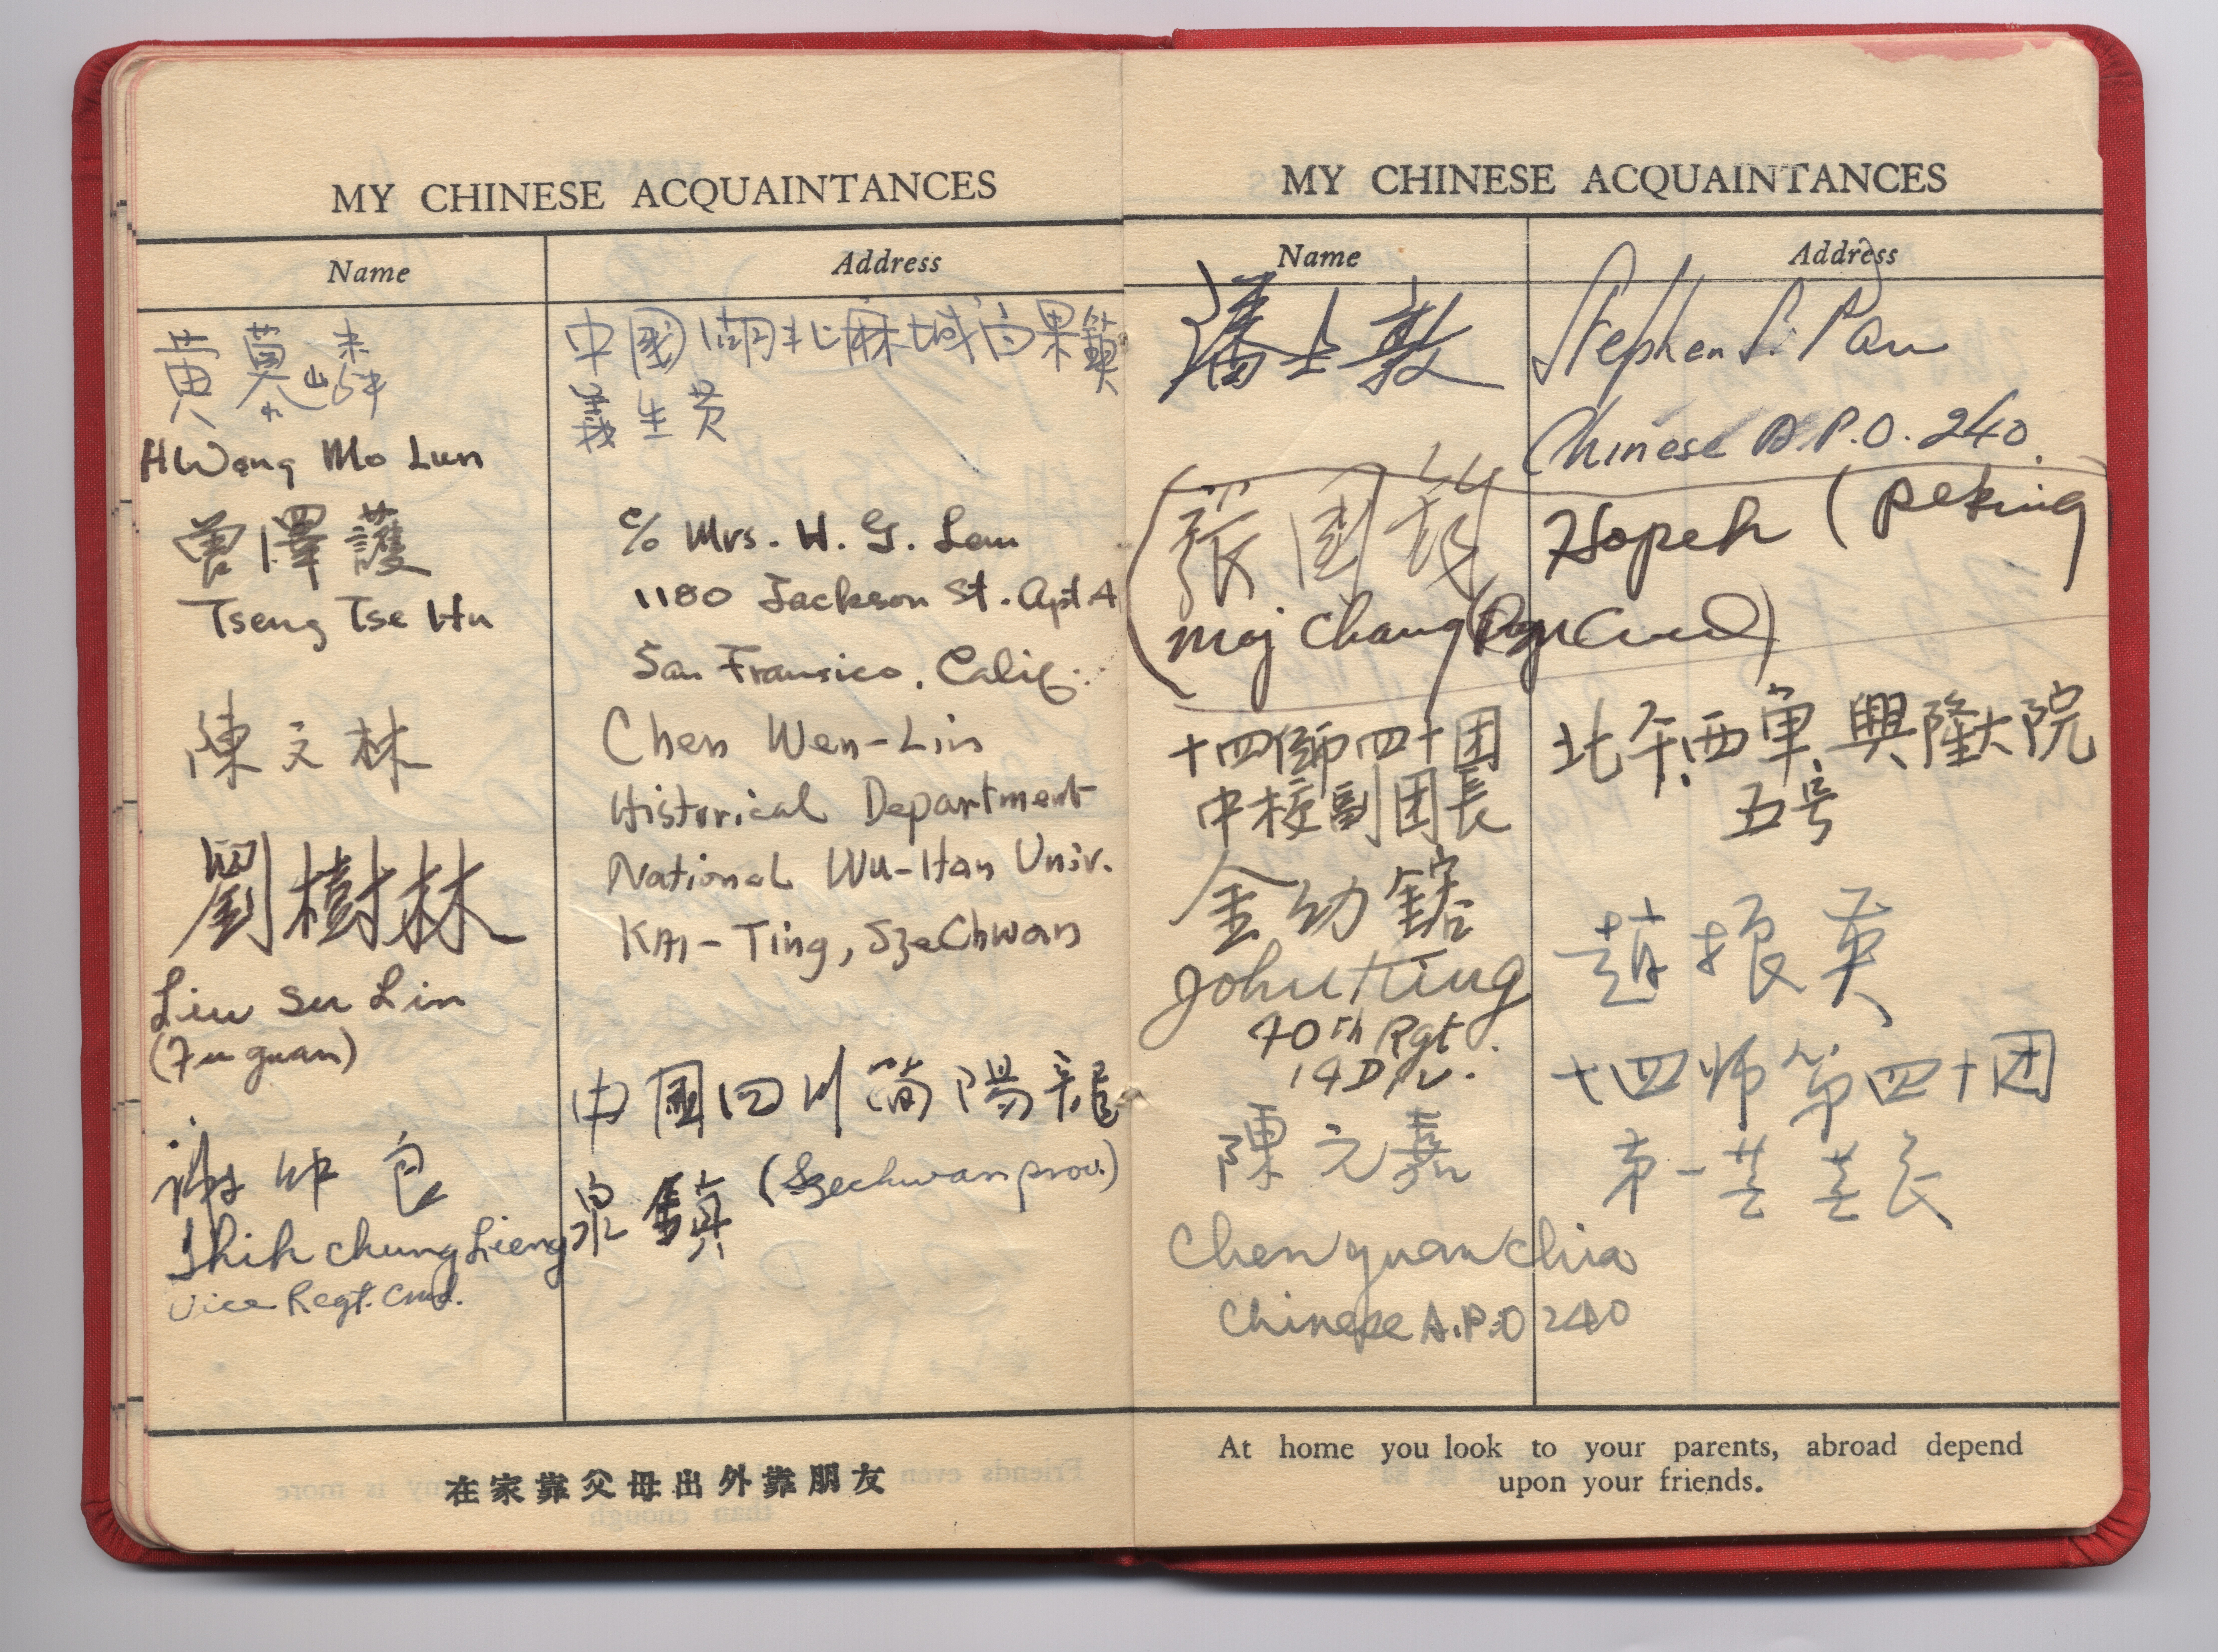 MY CHINESE ACQUAINTANCES
Name
Address
黃
HWang Mo Lun
中國湖北麻城白果鎮
義生黃
曾澤護
Tseng Tse Hu
c/o Mrs. H. G. Lem
1180 Jackson St. Apt 4
San Fransico, Calif.
陳文林
Chen Wen-Lin
Historical Department
National Wu-Han Univ.
KAI-Ting, SzeChwan
劉樹林
Liu Su Lin
(Fu guan)
Shih Chung Lieng
Vice Regt. Cmd.
中國四川簡陽龍
泉鎮 (Szechwan prov.)
在家靠父母出外靠朋友
MY CHINESE ACQUAINTANCES
Name
Address
潘士敦
Stephen S. Pan
Chinese A.P.O. 240
張國
Hopeh (Peking
Maj Chang
十四師四十团
中校副团長
金幼鎔
John King
40th Rgt.
14 Div.
北平西單興隆大院
五号
趙振英
十四师第四十团
第一营营长
陳元嘉
Chen yuan chia
Chinese A.P.O 240
At home you look to your parents, abroad depend
upon your friends.